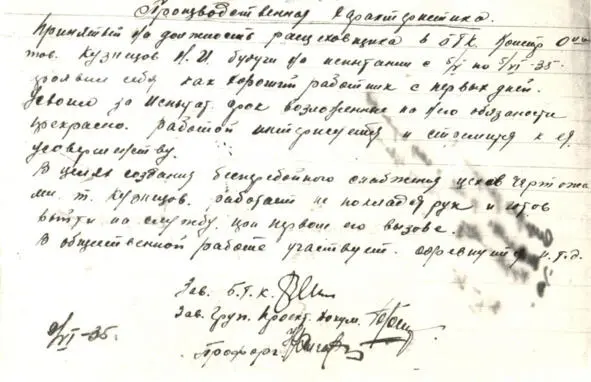 Производственная характеристика.
Принятый на должность расцеховщика в ОТК. Констр
тов. Кузнецов Н. И. будучи на испытании с 5/V по 5/VI-35.
проявил себя как хороший работник с первых дней.
Усвоил за испытат. срок возложенные на него обязаности
прекрасно. работой интересуется и стремится к её
усовершенству.
В целях создания бесперебойного снабжения цехов чертежа
ми. т. Кузнецов. работает не покладая рук и готов
выйти на службу при первом его вызове.
В общественной работе участвует. и.т.д.
Зав. Б.Т.К.
Зав. Груп. Проект. докум.
Профорг.
9/VI-35.